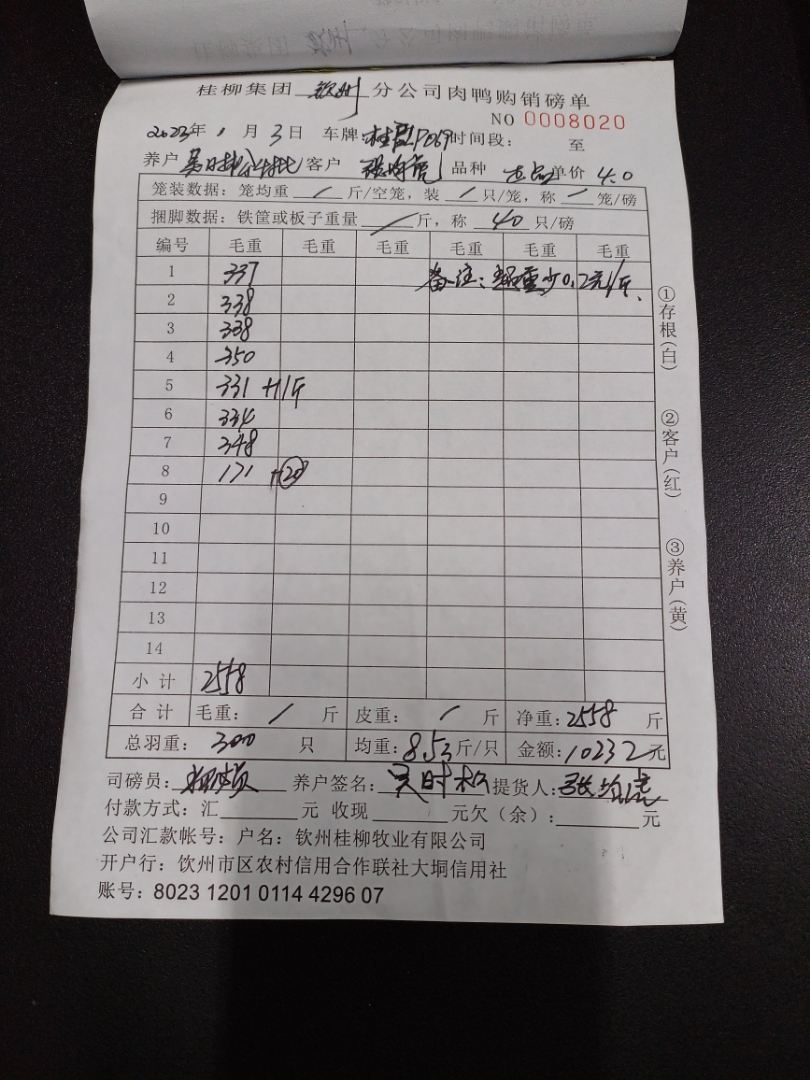 桂柳集团 钦州 分公司肉鸭购销磅单
NO 0008020
2023年 1 月 3 日 车牌: 时间段: 至
养户 客户 品种 单价 4.0
笼装数据: 笼均重 / 斤/空笼, 装 / 只/笼, 称 / 笼/磅
捆脚数据: 铁筐或板子重量 / 斤, 称 40 只/磅
编号 毛重 毛重 毛重 毛重 毛重 毛重
1 337 备注: 少0.2元/斤.
2 338
3 338
4 350
5 331 +1斤
6 334
7 348
8 171 +20
9
10
11
12
13
14
小计 2558
合计 毛重: / 斤 皮重: / 斤 净重: 2558 斤
总羽重: 300 只 均重: 8.53斤/只 金额: 10232元
司磅员: 养户签名: 吴时 提货人: 张
付款方式: 汇 元 收现 元欠(余): 元
公司汇款帐号: 户名: 钦州桂柳牧业有限公司
开户行: 钦州市区农村信用合作联社大垌信用社
账号: 8023 1201 0114 4296 07
①存根(白)
②客户(红)
③养户(黄)